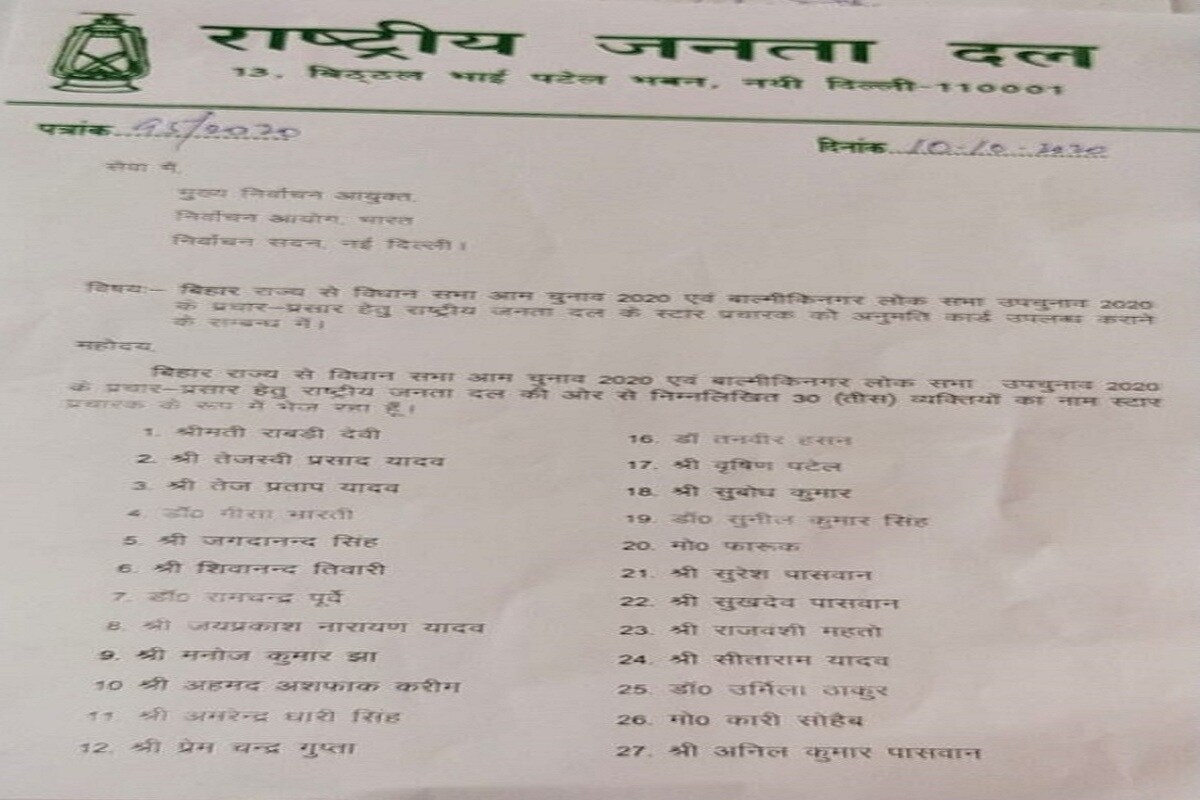 राष्ट्रीय जनता दल
13, बिठ्ठल भाई पटेल भवन, नयी दिल्ली-110001
पत्रांक 95/2020
दिनांक 10-10-2020
सेवा में,
मुख्य निर्वाचन आयुक्त,
निर्वाचन आयोग, भारत
निर्वाचन सदन, नई दिल्ली।
विषयः– बिहार राज्य से विधान सभा आम चुनाव 2020 एवं बाल्मीकिनगर लोक सभा उपचुनाव 2020
के प्रचार–प्रसार हेतु राष्ट्रीय जनता दल के स्टार प्रचारक को अनुमति कार्ड उपलब्ध कराने
के सम्बन्ध में।
महोदय,
बिहार राज्य से विधान सभा आम चुनाव 2020 एवं बाल्मीकिनगर लोक सभा उपचुनाव 2020
के प्रचार–प्रसार हेतु राष्ट्रीय जनता दल की ओर से निम्नलिखित 30 (तीस) व्यक्तियों का नाम स्टार
प्रचारक के रूप में भेज रहा हूँ।
1. श्रीमती राबड़ी देवी
2. श्री तेजस्वी प्रसाद यादव
3. श्री तेज प्रताप यादव
4. डॉ0 मीसा भारती
5. श्री जगदानन्द सिंह
6. श्री शिवानन्द तिवारी
7. डॉ0 रामचन्द्र पूर्वे
8. श्री जयप्रकाश नारायण यादव
9. श्री मनोज कुमार झा
10 श्री अहमद अशफाक करीम
11. श्री अमरेन्द्र धारी सिंह
12. श्री प्रेम चन्द्र गुप्ता
16. डॉ तनवीर हसन
17. श्री वृषिण पटेल
18. श्री सुबोध कुमार
19. डॉ0 सुनील कुमार सिंह
20. मो0 फारूक
21. श्री सुरेश पासवान
22. श्री सुखदेव पासवान
23. श्री राजवंशी महतो
24. श्री सीताराम यादव
25. डॉ0 उर्मिला ठाकुर
26. मो0 कारी सोहैब
27. श्री अनिल कुमार पासवान